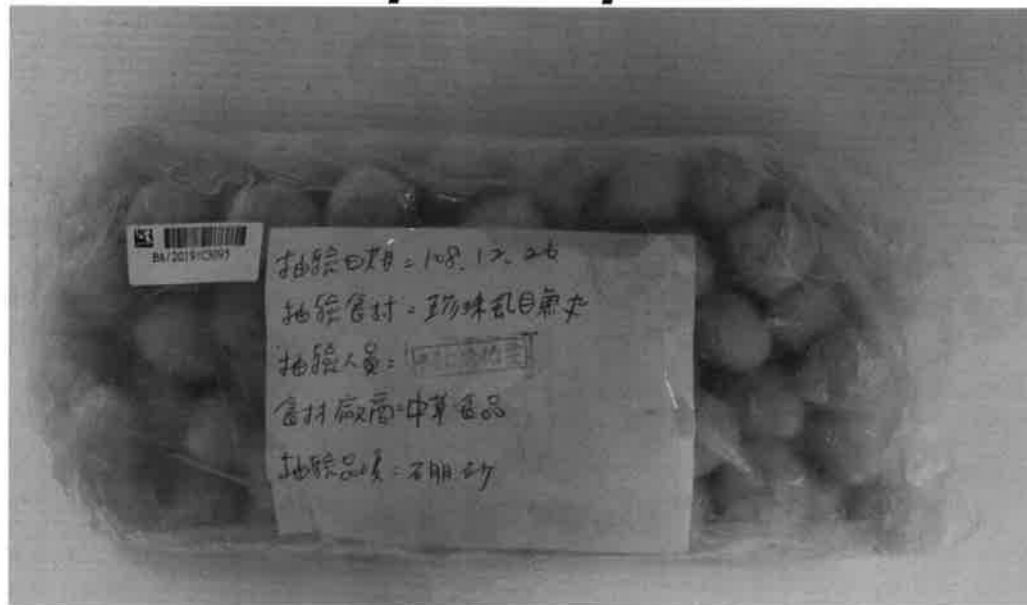 BA/2019/C3093
抽驗日期=108.12.26
抽驗食材=珍珠虱目魚丸
抽驗人員=
食材廠商=中華食品
抽驗品項=硼砂